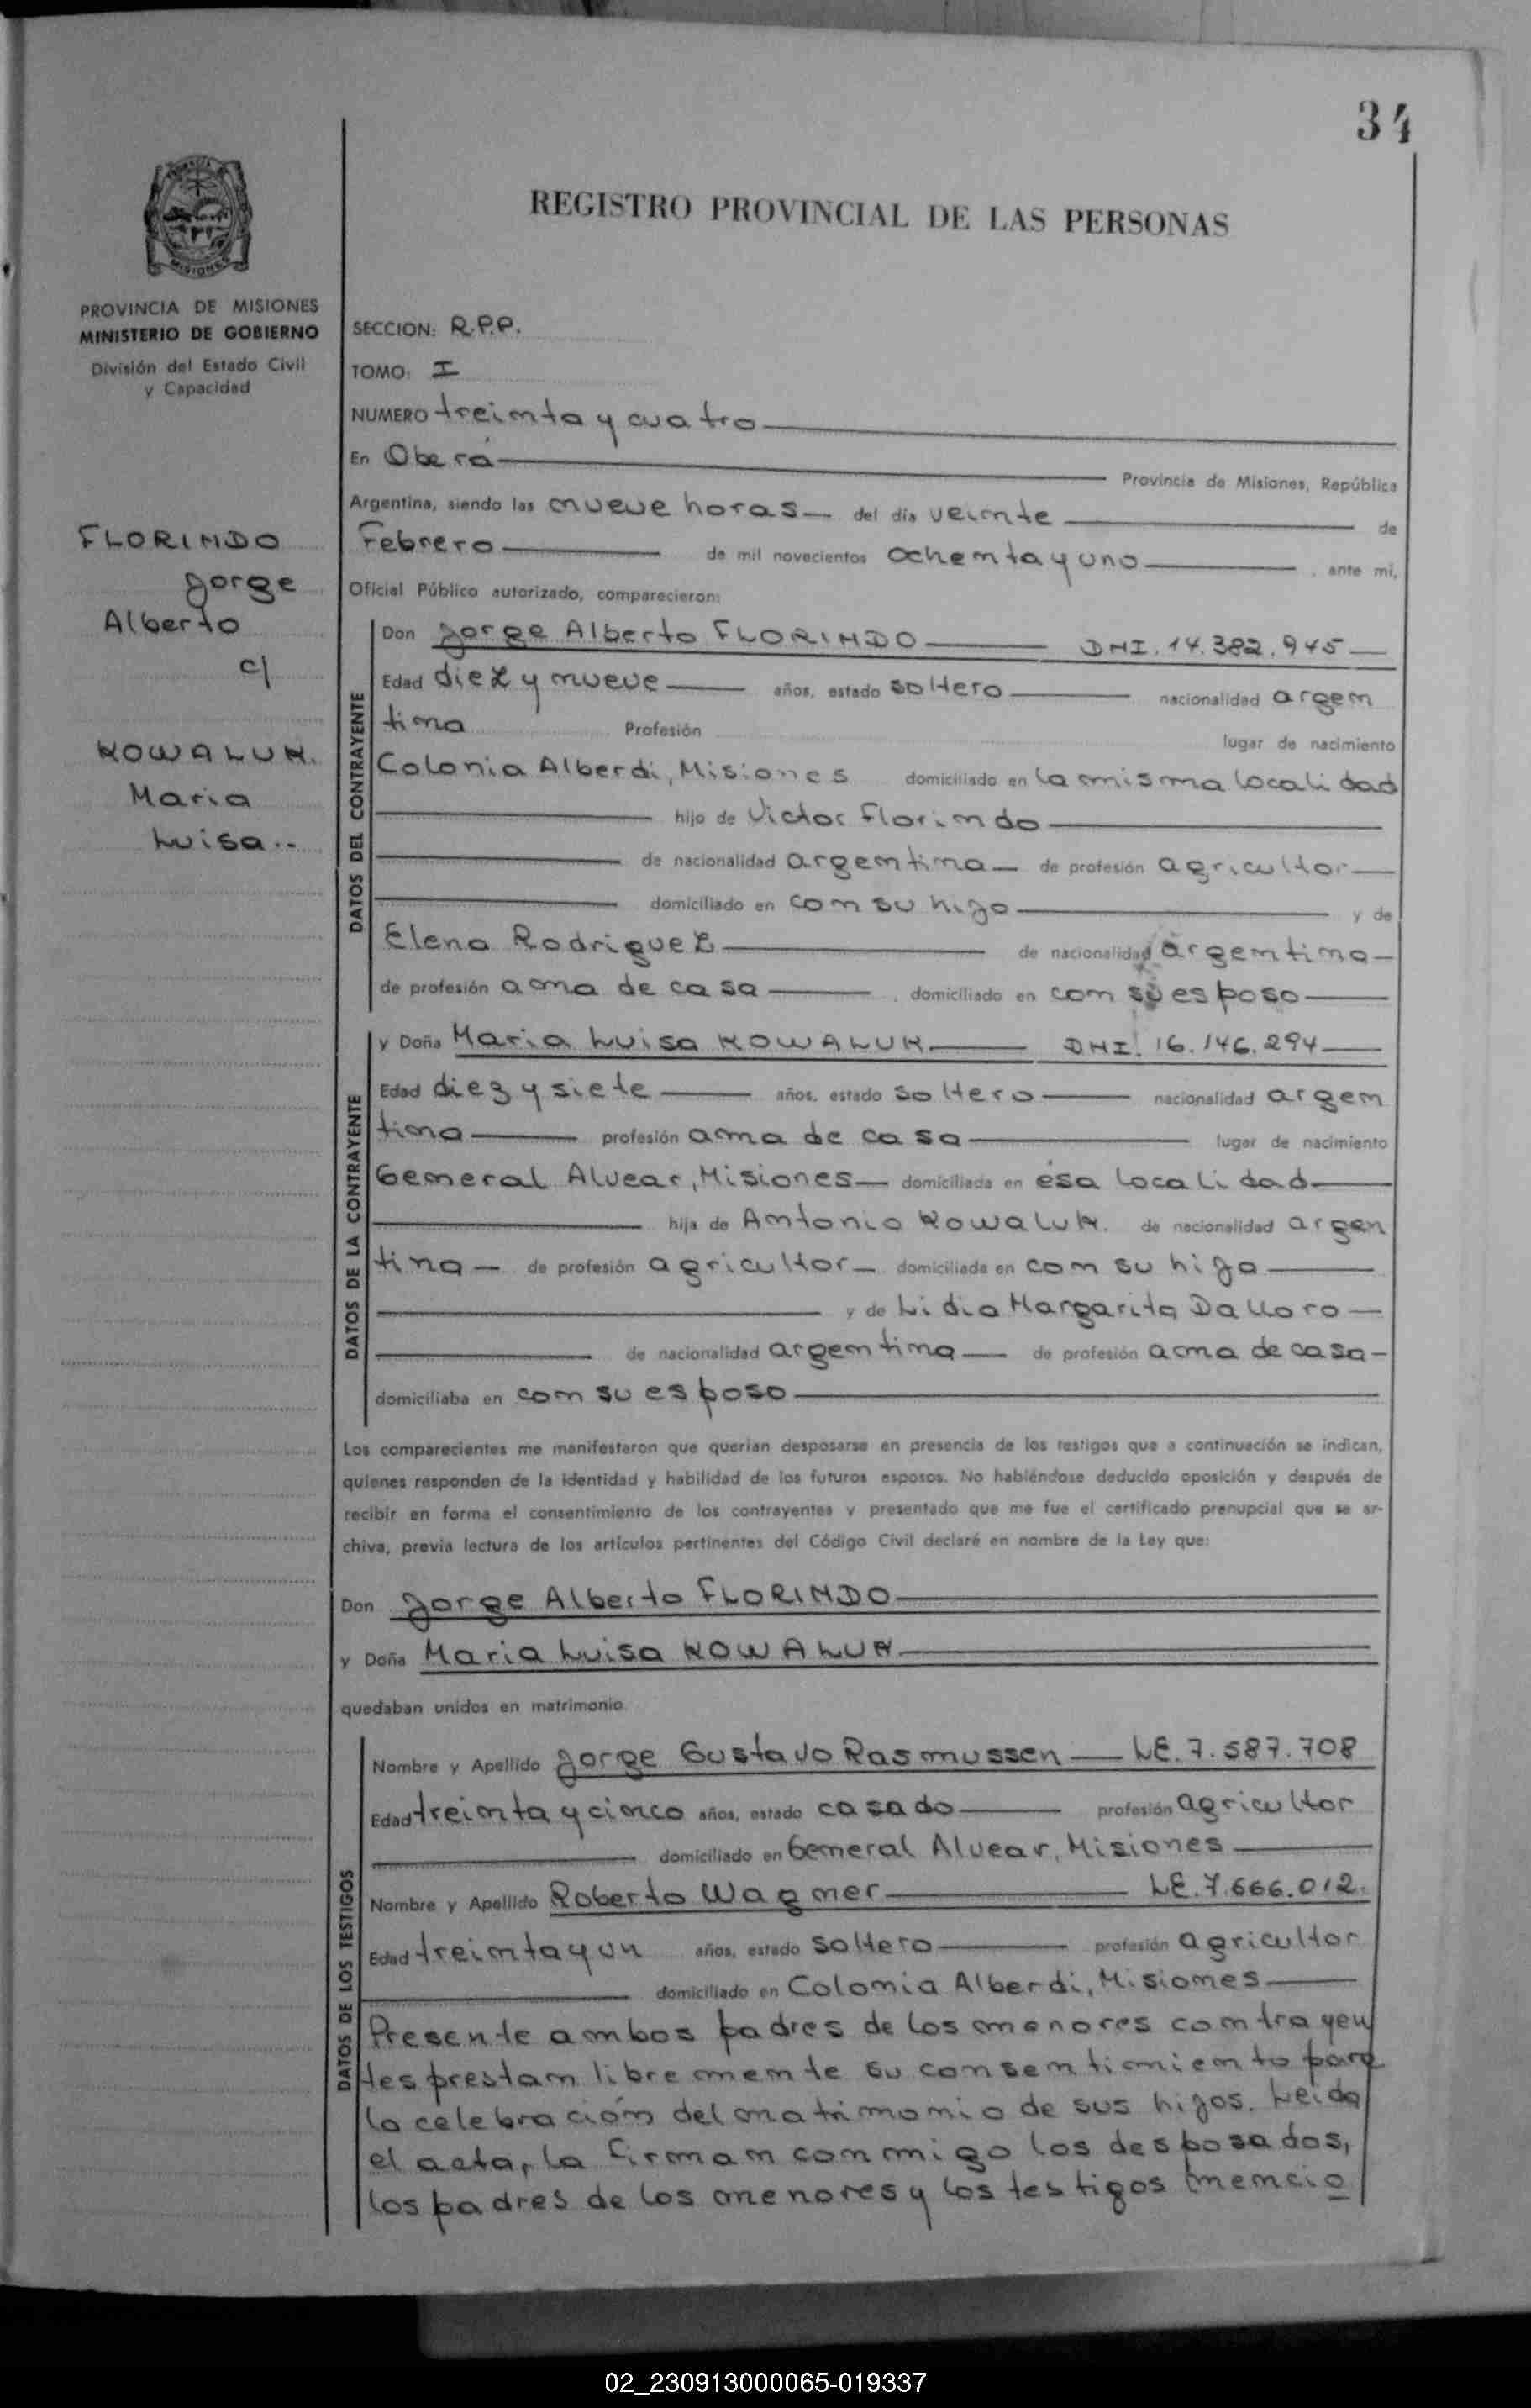 34
REGISTRO PROVINCIAL DE LAS PERSONAS
MISIONES
PROVINCIA DE MISIONES
MINISTERIO DE GOBIERNO
División del Estado Civil
y Capacidad
FLORINDO
Jorge
Alberto
c/
KOWALUK.
Maria
Luisa..
SECCION: R.P.P.
TOMO: I
NUMERO treinta y cuatro
En Oberá Provincia de Misiones, República
Argentina, siendo las nueve horas del día veinte de
Febrero de mil novecientos ochenta y uno, ante mí,
Oficial Público autorizado, comparecieron:
DATOS DEL CONTRAYENTE
Don Jorge Alberto FLORINDO DNI. 14.382.945
Edad diez y nueve años, estado soltero nacionalidad argen
tina Profesión lugar de nacimiento
Colonia Alberdi, Misiones domiciliado en la misma localidad
hijo de Victor Florindo
de nacionalidad argentina de profesión agricultor
domiciliado en con su hijo y de
Elena Rodriguez de nacionalidad argentina
de profesión ama de casa, domiciliada en con su esposo
DATOS DE LA CONTRAYENTE
y Doña Maria Luisa KOWALUK DNI. 16.146.294
Edad diez y siete años, estado soltero nacionalidad argen
tina profesión ama de casa lugar de nacimiento
General Alvear, Misiones domiciliada en ésa localidad
hija de Antonio Kowaluk. de nacionalidad argen
tina de profesión agricultor domiciliado en con su hija
y de Lidia Margarita Dalloro
de nacionalidad argentina de profesión ama de casa
domiciliaba en con su esposo
Los comparecientes me manifestaron que querían desposarse en presencia de los testigos que a continuación se indican,
quienes responden de la identidad y habilidad de los futuros esposos. No habiéndose deducido oposición y después de
recibir en forma el consentimiento de los contrayentes y presentado que me fue el certificado prenupcial que se ar-
chiva, previa lectura de los artículos pertinentes del Código Civil declaré en nombre de la Ley que:
Don Jorge Alberto FLORINDO
y Doña Maria Luisa KOWALUK
quedaban unidos en matrimonio
DATOS DE LOS TESTIGOS
Nombre y Apellido Jorge Gustavo Rasmussen LE. 7.587.708
Edad treinta y cinco años, estado casado profesión agricultor
domiciliado en General Alvear, Misiones
Nombre y Apellido Roberto Wagner LE. 7.666.012.
Edad treinta y un años, estado soltero profesión agricultor
domiciliado en Colonia Alberdi, Misiones
Presente ambos padres de los menores contrayen
tes prestan libremente su consentimiento para
la celebración del matrimonio de sus hijos. Leida
el acta, la firman conmigo los desposados,
los padres de los menores y los testigos mencio
02_230913000065-019337